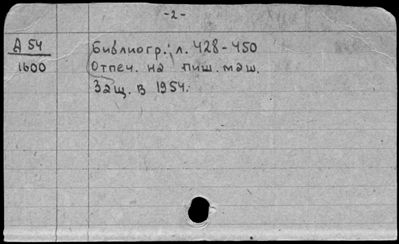 -2-
А 54
1600
библиогр.: л. 428-450
Отпеч. на пиш. маш.
Защ. в 1954.